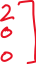 2
0
0